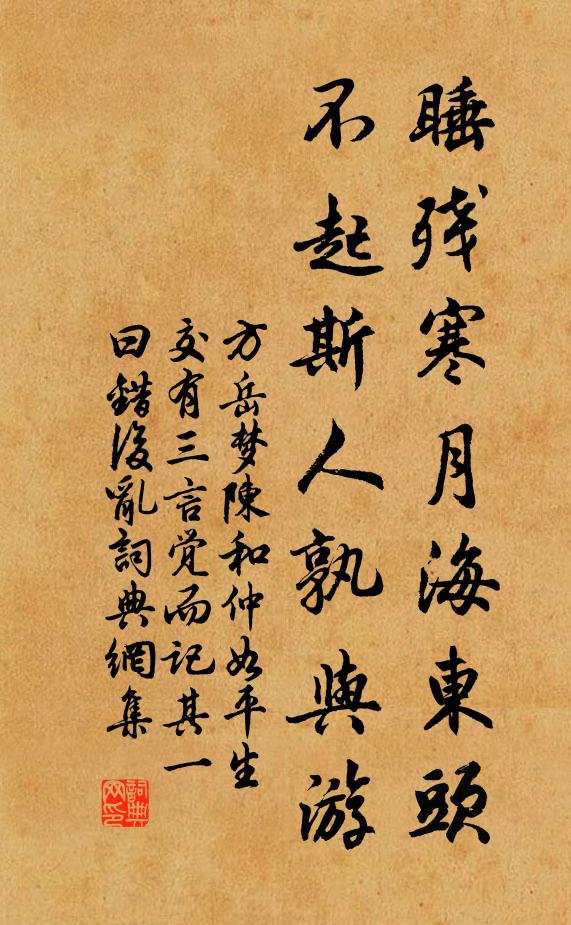 睡残寒月海東頭
不起斯人孰與游
方岳梦陳和仲如平生
交有三言觉而記其一
曰錯後亂詞典網集
詞典
网印